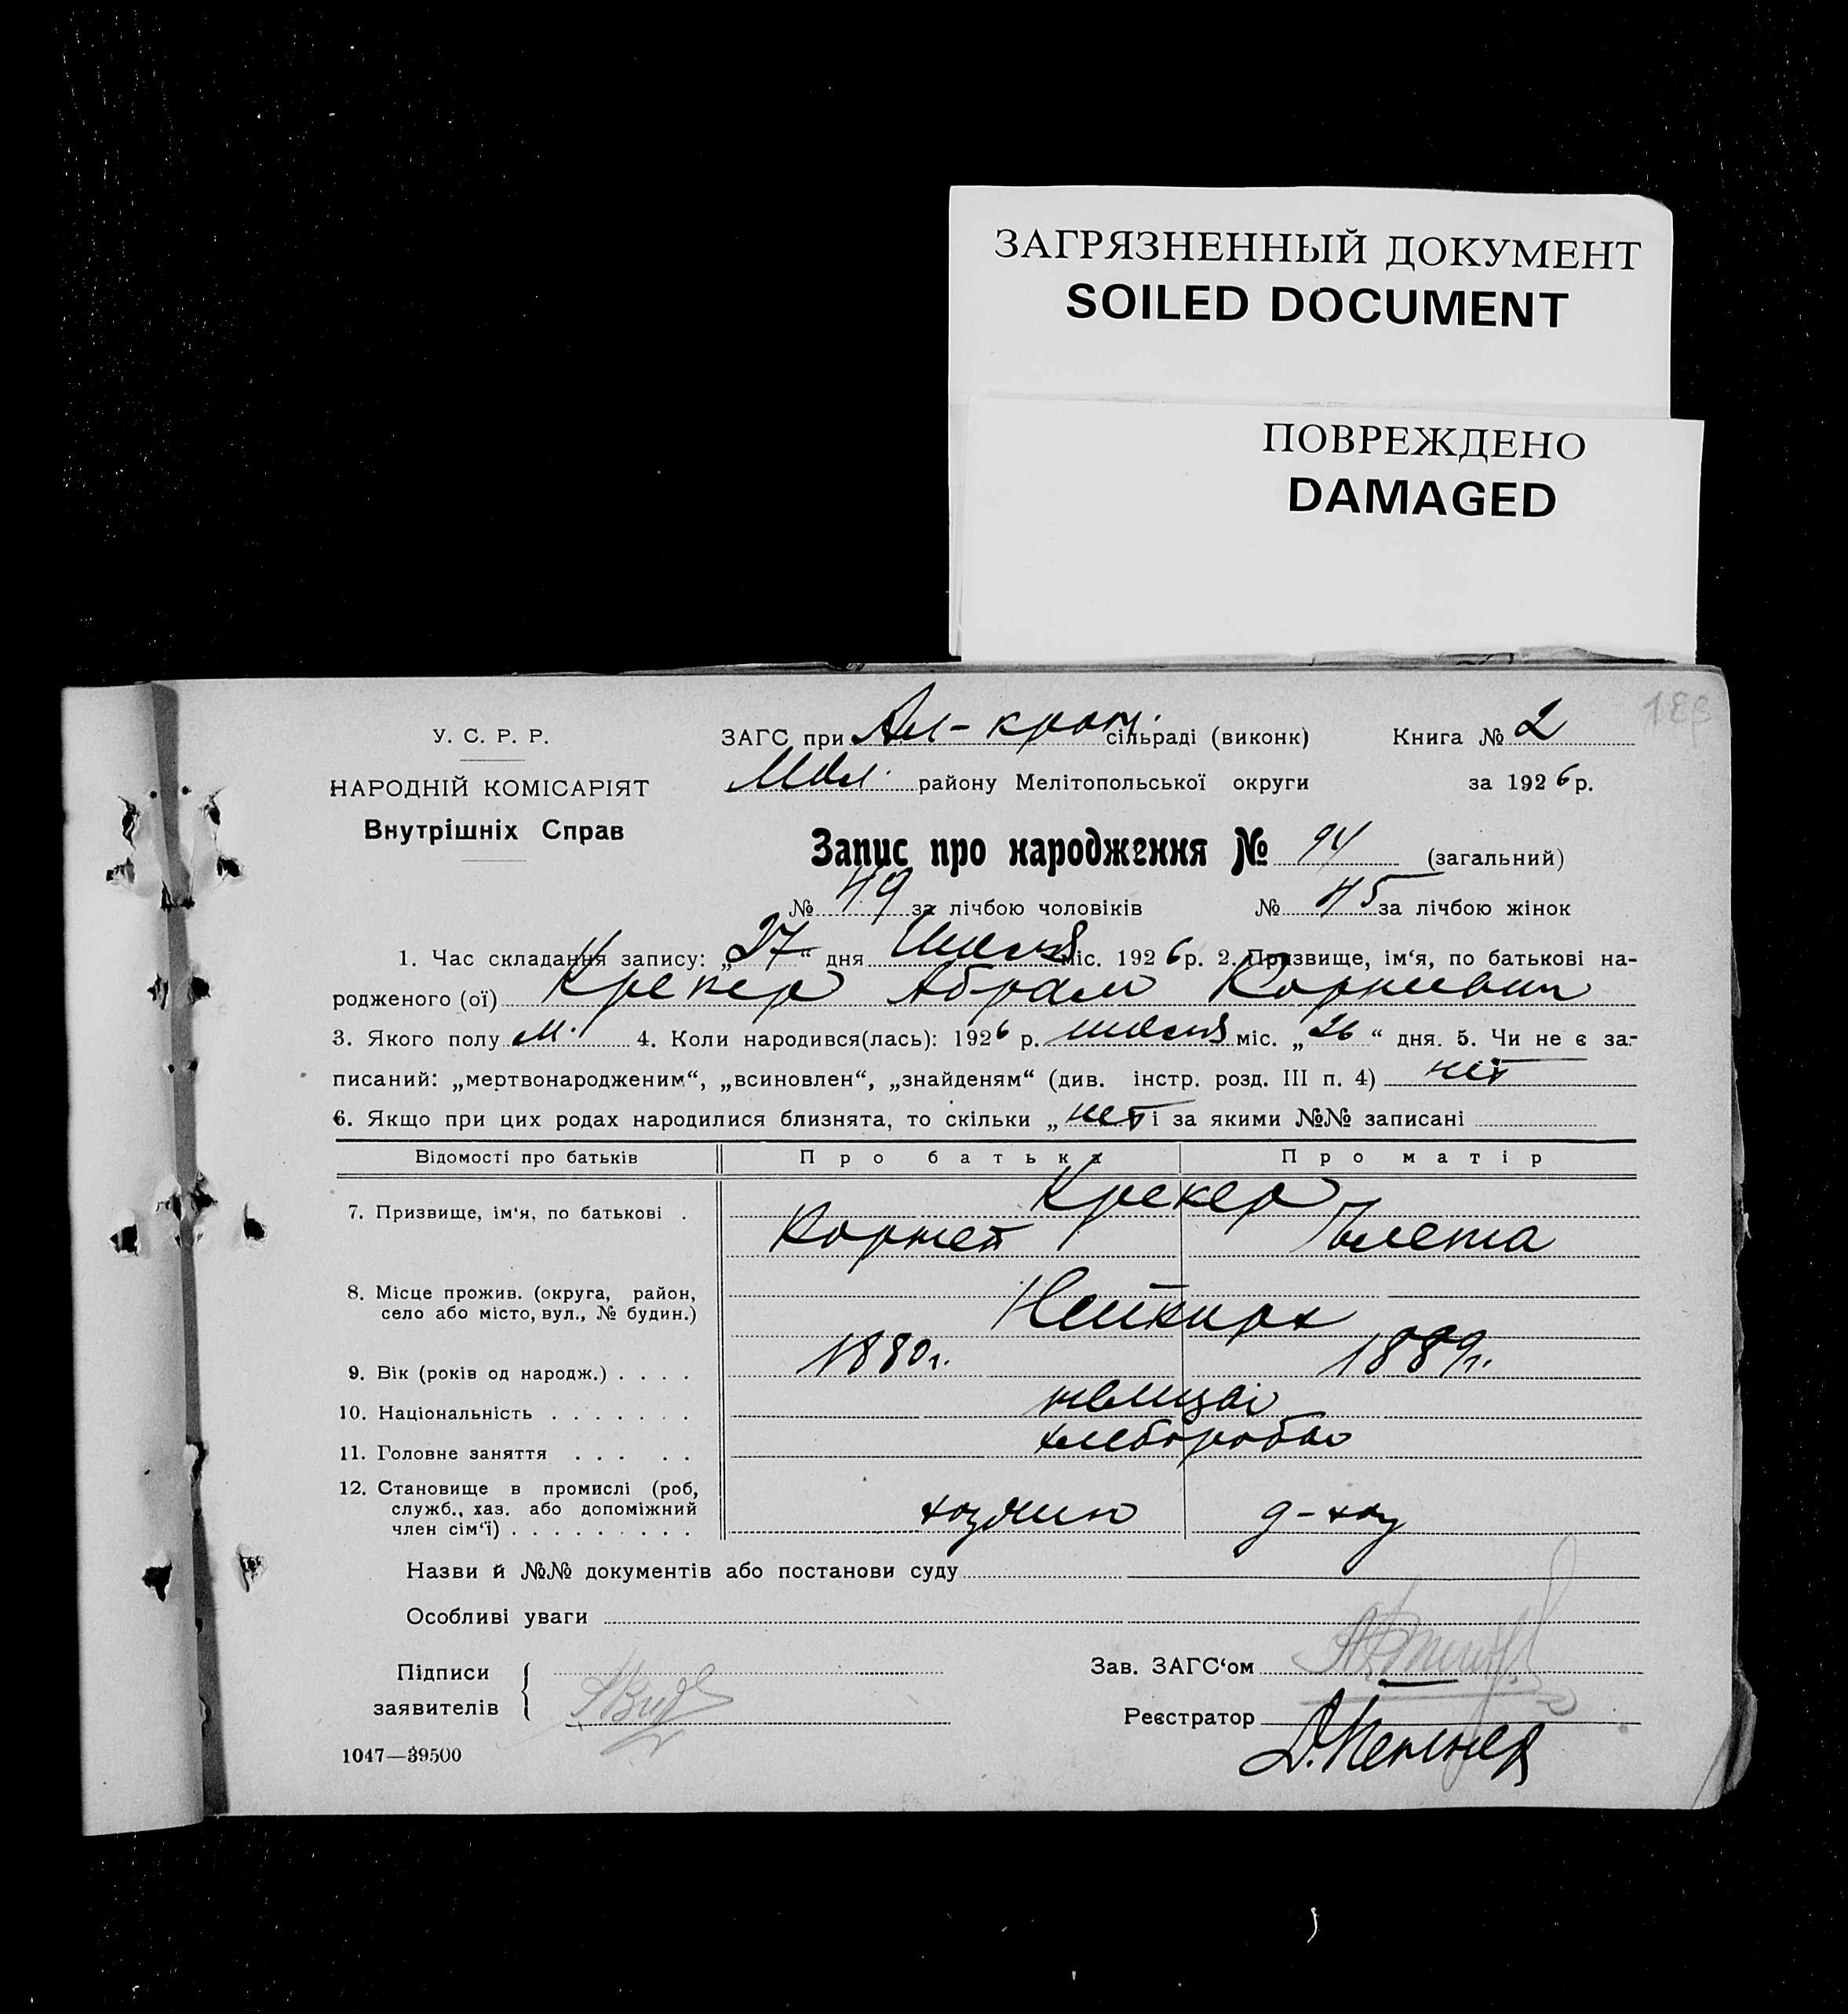 ЗАГРЯЗНЕННЫЙ ДОКУМЕНТ
SOILED DOCUMENT
ПОВРЕЖДЕНО
DAMAGED
У. С. Р. Р.
НАРОДНІЙ КОМІСАРІЯТ
Внутрішніх Справ
ЗАГС при Ал-крон. сільраді (виконк) Книга № 2
Мол. району Мелітопольської округи за 1926 р.
Запис про народження № 94 (загальний)
№ 49 за лічбою чоловіків № 45 за лічбою жінок
1. Час складання запису: „27“ дня июля міс. 1926 р. 2. Призвище, ім‘я, по батькові на-
родженого (ої) Крекер Абрам Корнеевич
3. Якого полу м. 4. Коли народився(лась): 1926 р. июля міс. „26“ дня. 5. Чи не є за-
писаний: „мертвонародженим“, „всиновлен“, „знайденям“ (див. інстр. розд. III п. 4) нет
6. Якщо при цих родах народилися близнята, то скільки „нет і за якими №№ записані
Відомості про батьків Про батька Про матір
7. Призвище, ім‘я, по батькові . Крекер
Корней Елена
8. Місце прожив. (округа, район,
село або місто, вул., № будин.) Нейкирх
9. Вік (років од народж.) . . . . 1880г. 1889г.
10. Національність . . . . . . . немцы
11. Головне заняття . . . . . хлебороб
12. Становище в промислі (роб,
служб., хаз. або допоміжний
член сім‘ї) . . . . . . . . . хозяин д-хоз
Назви й №№ документів або постанови суду
Особливі уваги
Підписи
заявителів
Зав. ЗАГС‘ом
Реєстратор
1047—39500